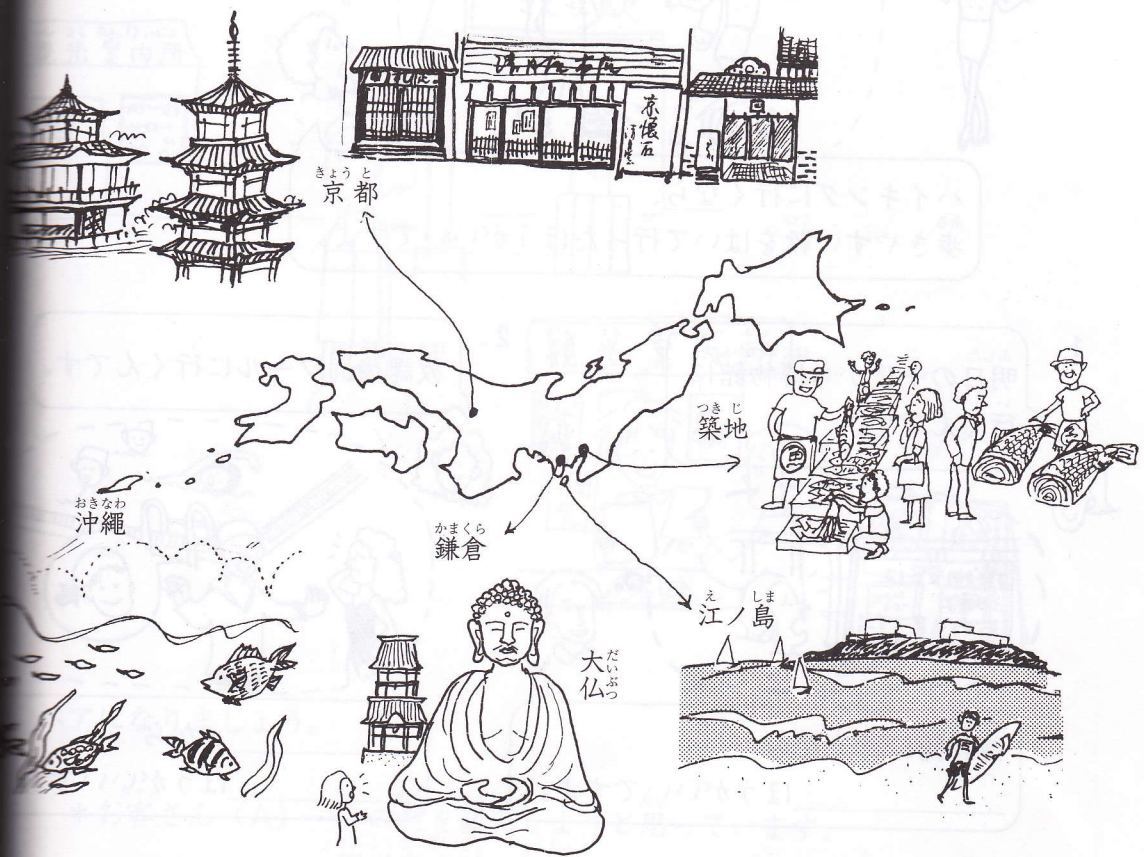 京懐石
きょうと
京都
つきじ
築地
おきなわ
沖繩
かまくら
鎌倉
えしま
江ノ島
だいぶつ
大仏